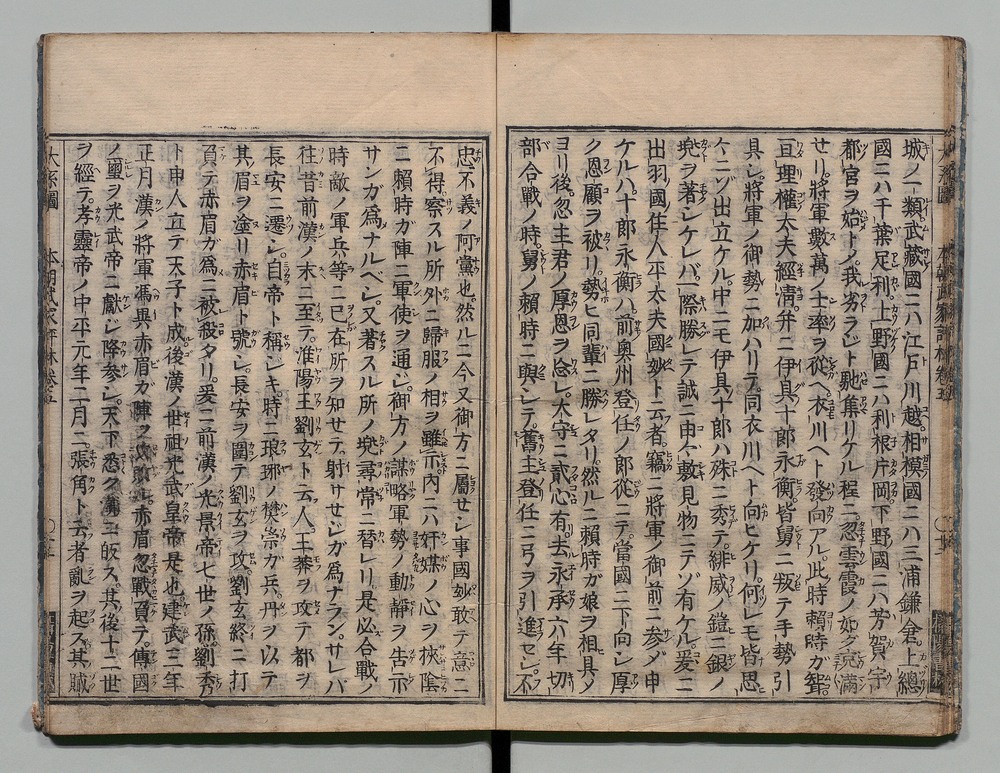 城ノ一類武藏國ニハ江戸川越相模國ニハ三浦鎌倉上總
國ニハ千葉足利上野國ニハ利根片岡下野國ニハ芳賀宇
都宮ヲ始トノ我劣ラジト馳集リケル程ニ忽雲霞ノ如ク充滿
セリ將軍數萬ノ士率ヲ從ヘ衣川ヘト發向アル此時賴時ガ聟
亘理權太夫經淸并ニ伊具十郎永衡皆舅ニ叛テ手勢引
具シ將軍ノ御勢ニ加ハリテ同衣川ヘト向ヒケリ何レモ皆思
ヘニゾ出立ケル中ニモ伊具十郎ハ殊ニ秀テ緋威ノ鎧ニ銀ノ
兜ヲ著シケレバ一際勝レテ誠ニ申ヘ敷見物ニテゾ有ケル爰ニ
出羽國住人平太夫國妙ト云者竊ニ將軍ノ御前ニ參メ申
ケルハ十郎永衡ハ前奥州登任ノ郎從ニテ當國ニ下向シ厚
ク恩顧ヲ被リ勢ヒ同輩ニ勝レタリ然ルニ賴時ガ娘ヲ相具メ
ヨリ後忽主君ノ厚恩ヲ忘レ太守ニ貳心有去永承六年切
部合戰ノ時舅ノ賴時ニ與シテ舊主登任ニ弓ヲ引進セシ不
忠不義ノ阿黨也然ルニ今又御方ニ屬セシ事國妙敢テ意ニ
不得察スル所外ニ歸服ノ相ヲ雖示内ニハ奸媒ノ心ヲ挾陰
ニ賴時ガ陣ニ軍使ヲ通ジ御方ノ謀略軍勢ノ動靜ヲ告示
サンガ爲ナルベシ又著スル所ノ兜尋常ニ替レリ是必合戰ノ
時敵ノ軍兵等ニ己在所ヲ知セテ射サセジガ爲ナランサレバ
往昔前漢ノ末ニ至テ淮陽王劉玄ト云人王莽ヲ攻テ都ヲ
長安ニ遷シ自帝ト稱シキ時ニ琅琊ノ樊崇ガ兵丹ヲ以テ
其ノ眉ヲ塗リ赤眉ト號シ長安ヲ圍テ劉玄ヲ攻劉玄終ニ打
負テ赤眉ガ爲ニ被殺タリ爰ニ前漢ノ光景帝七世ノ孫劉秀
ト申人立テ天子ト成後漢ノ世祖光武皇帝是也建武三年
正月漢ノ將軍馮異赤眉ガ陣ヲ攻敗ル赤眉忽戰負テ傳國
ノ璽ヲ光武帝ニ獻ジ降參シ天下悉ク漢ニ皈ス其後十二世
ヲ經テ孝靈帝ノ中平元年二月ニ張角ト云者亂ヲ起ス其賊
大系圖 本朝武家評林卷五